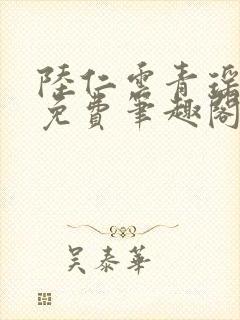 陸仁雲青瑶
免費筆趣閣
吳泰華